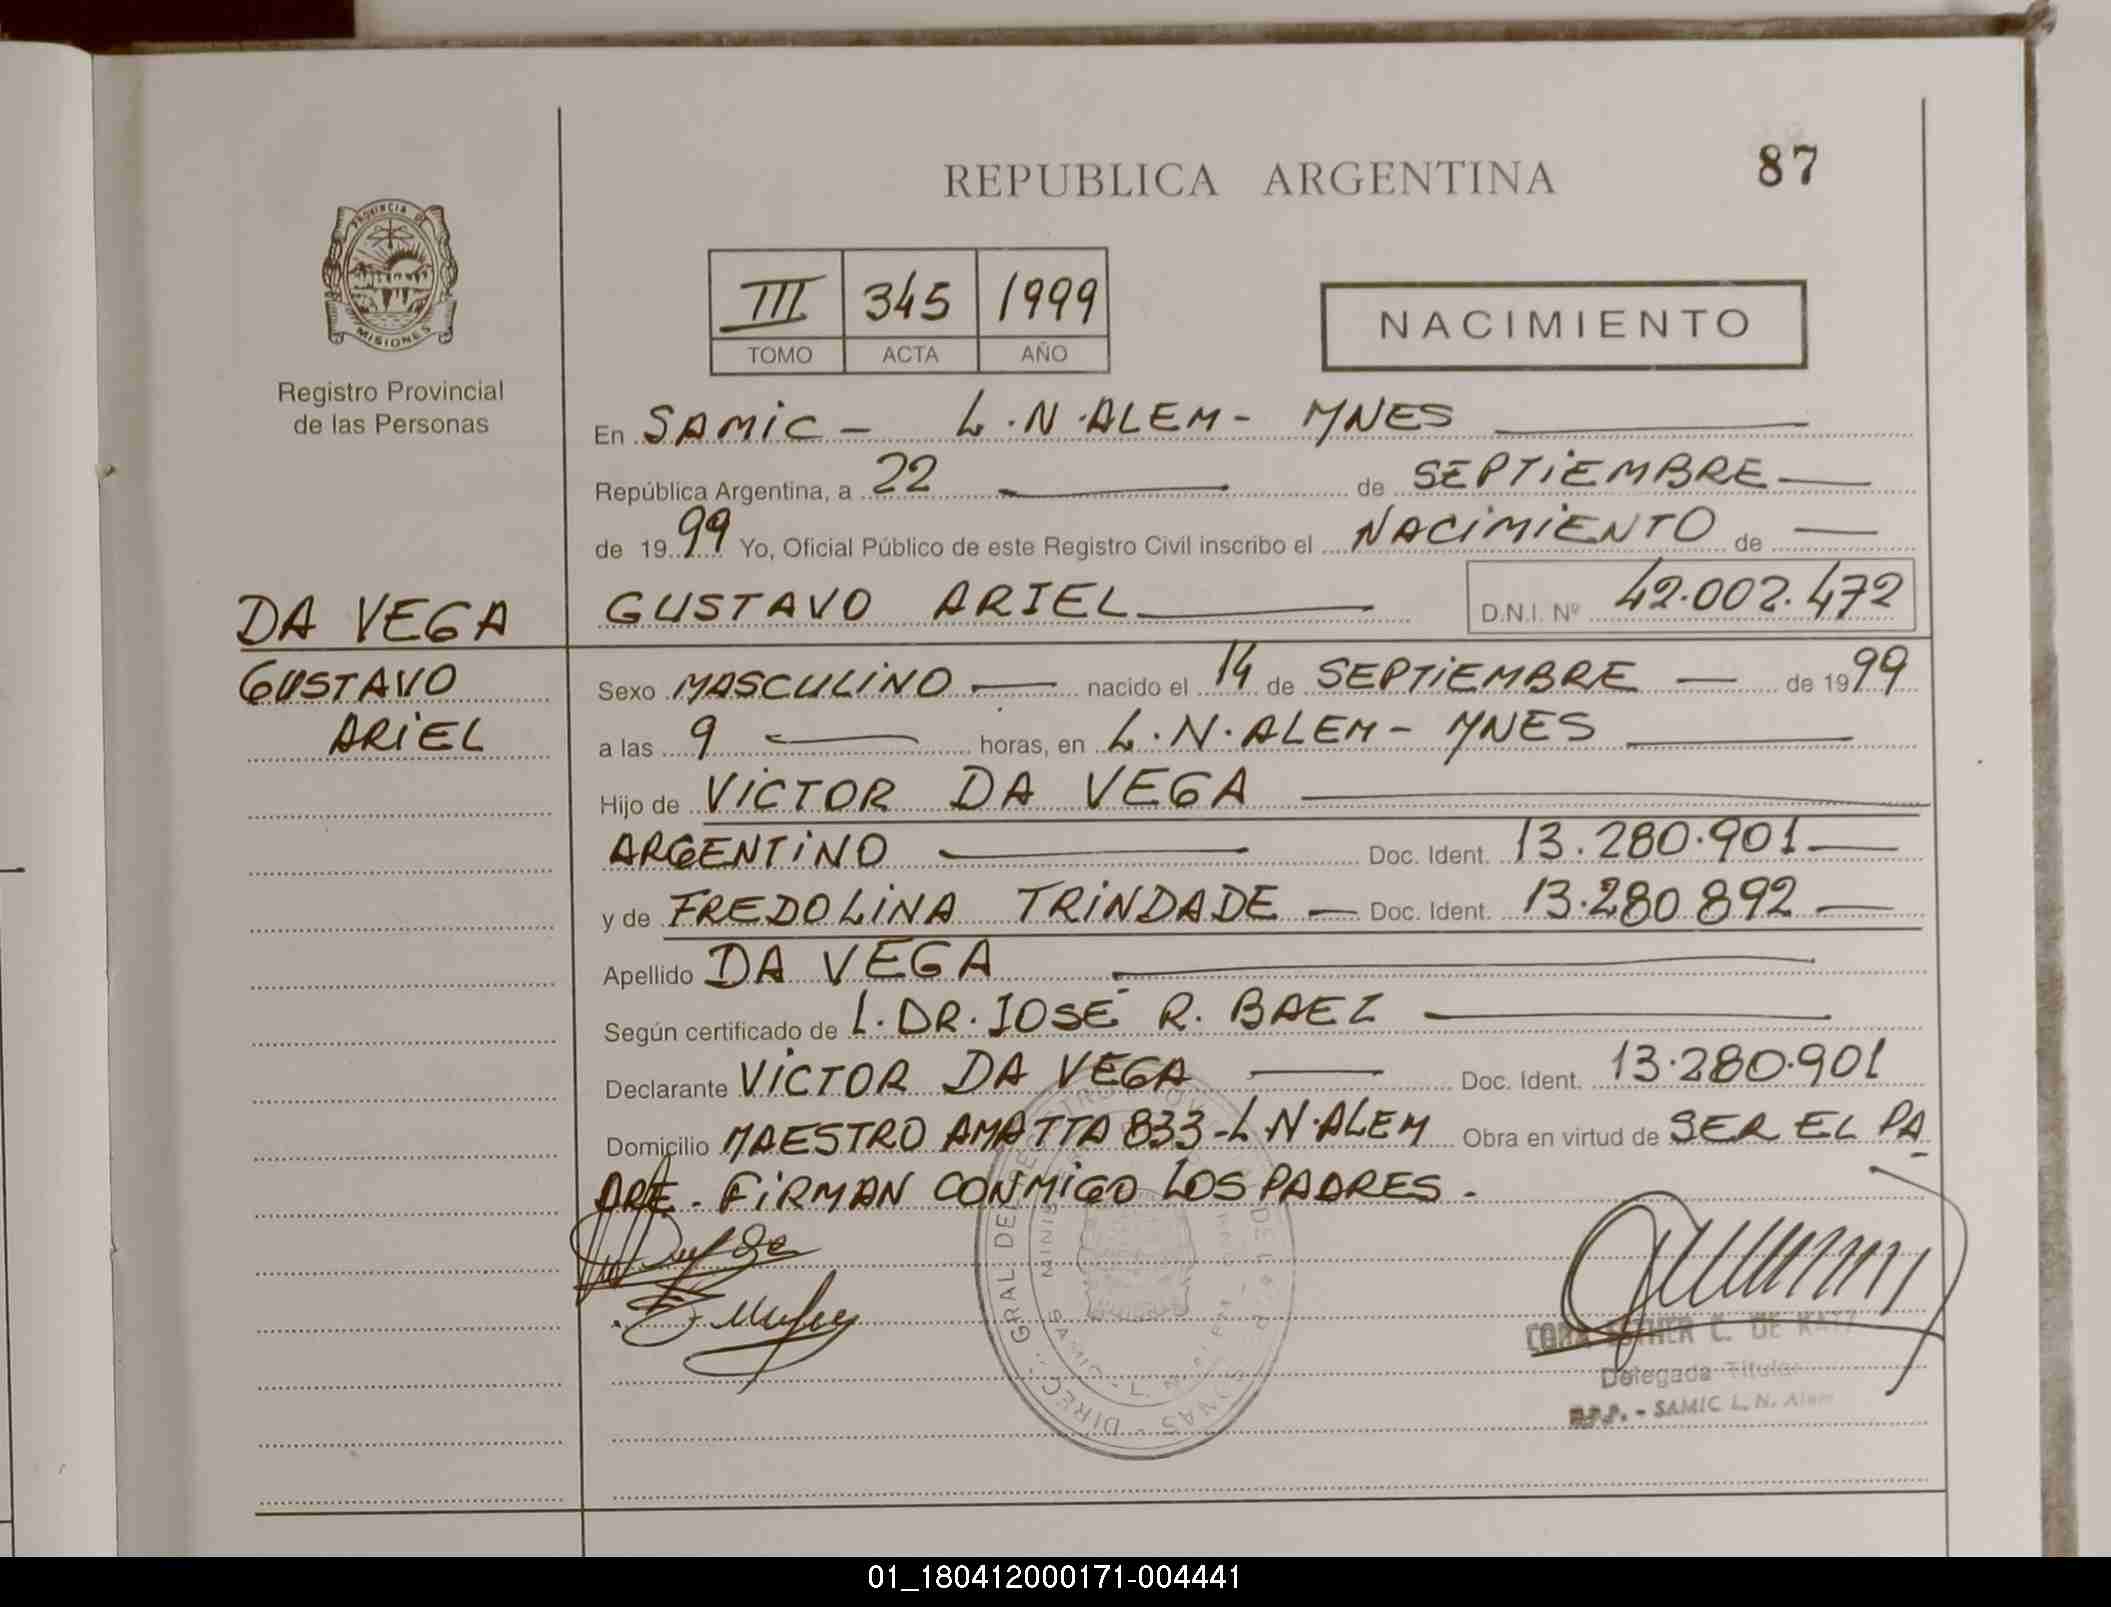 REPUBLICA ARGENTINA
87
PROVINCIA DE
MISIONES
Registro Provincial
de las Personas
III 345 1999
TOMO ACTA AÑO
NACIMIENTO
En SAMIC - L.N.ALEM - MNES
República Argentina, a 22 de SEPTIEMBRE
de 1999 Yo, Oficial Público de este Registro Civil inscribo el NACIMIENTO de
DA VEGA
GUSTAVO ARIEL D.N.I. Nº 42.002.472
GUSTAVO
ARIEL
Sexo MASCULINO nacido el 14 de SEPTIEMBRE de 1999
a las 9 horas, en L.N.ALEM - MNES
Hijo de VICTOR DA VEGA
ARGENTINO Doc. Ident. 13.280.901
y de FREDOLINA TRINDADE Doc. Ident. 13.280892
Apellido DA VEGA
Según certificado de L.DR.JOSÉ R. BAEZ
Declarante VICTOR DA VEGA Doc. Ident. 13.280.901
Domicilio MAESTRO AMATTA 833-L.N.ALEM Obra en virtud de SER EL PA
DRE. FIRMAN CONMIGO LOS PADRES.
ESTHER C. DE KATZ
Delegada Titular
R.P.P. - SAMIC L. N. Alem
01_180412000171-004441